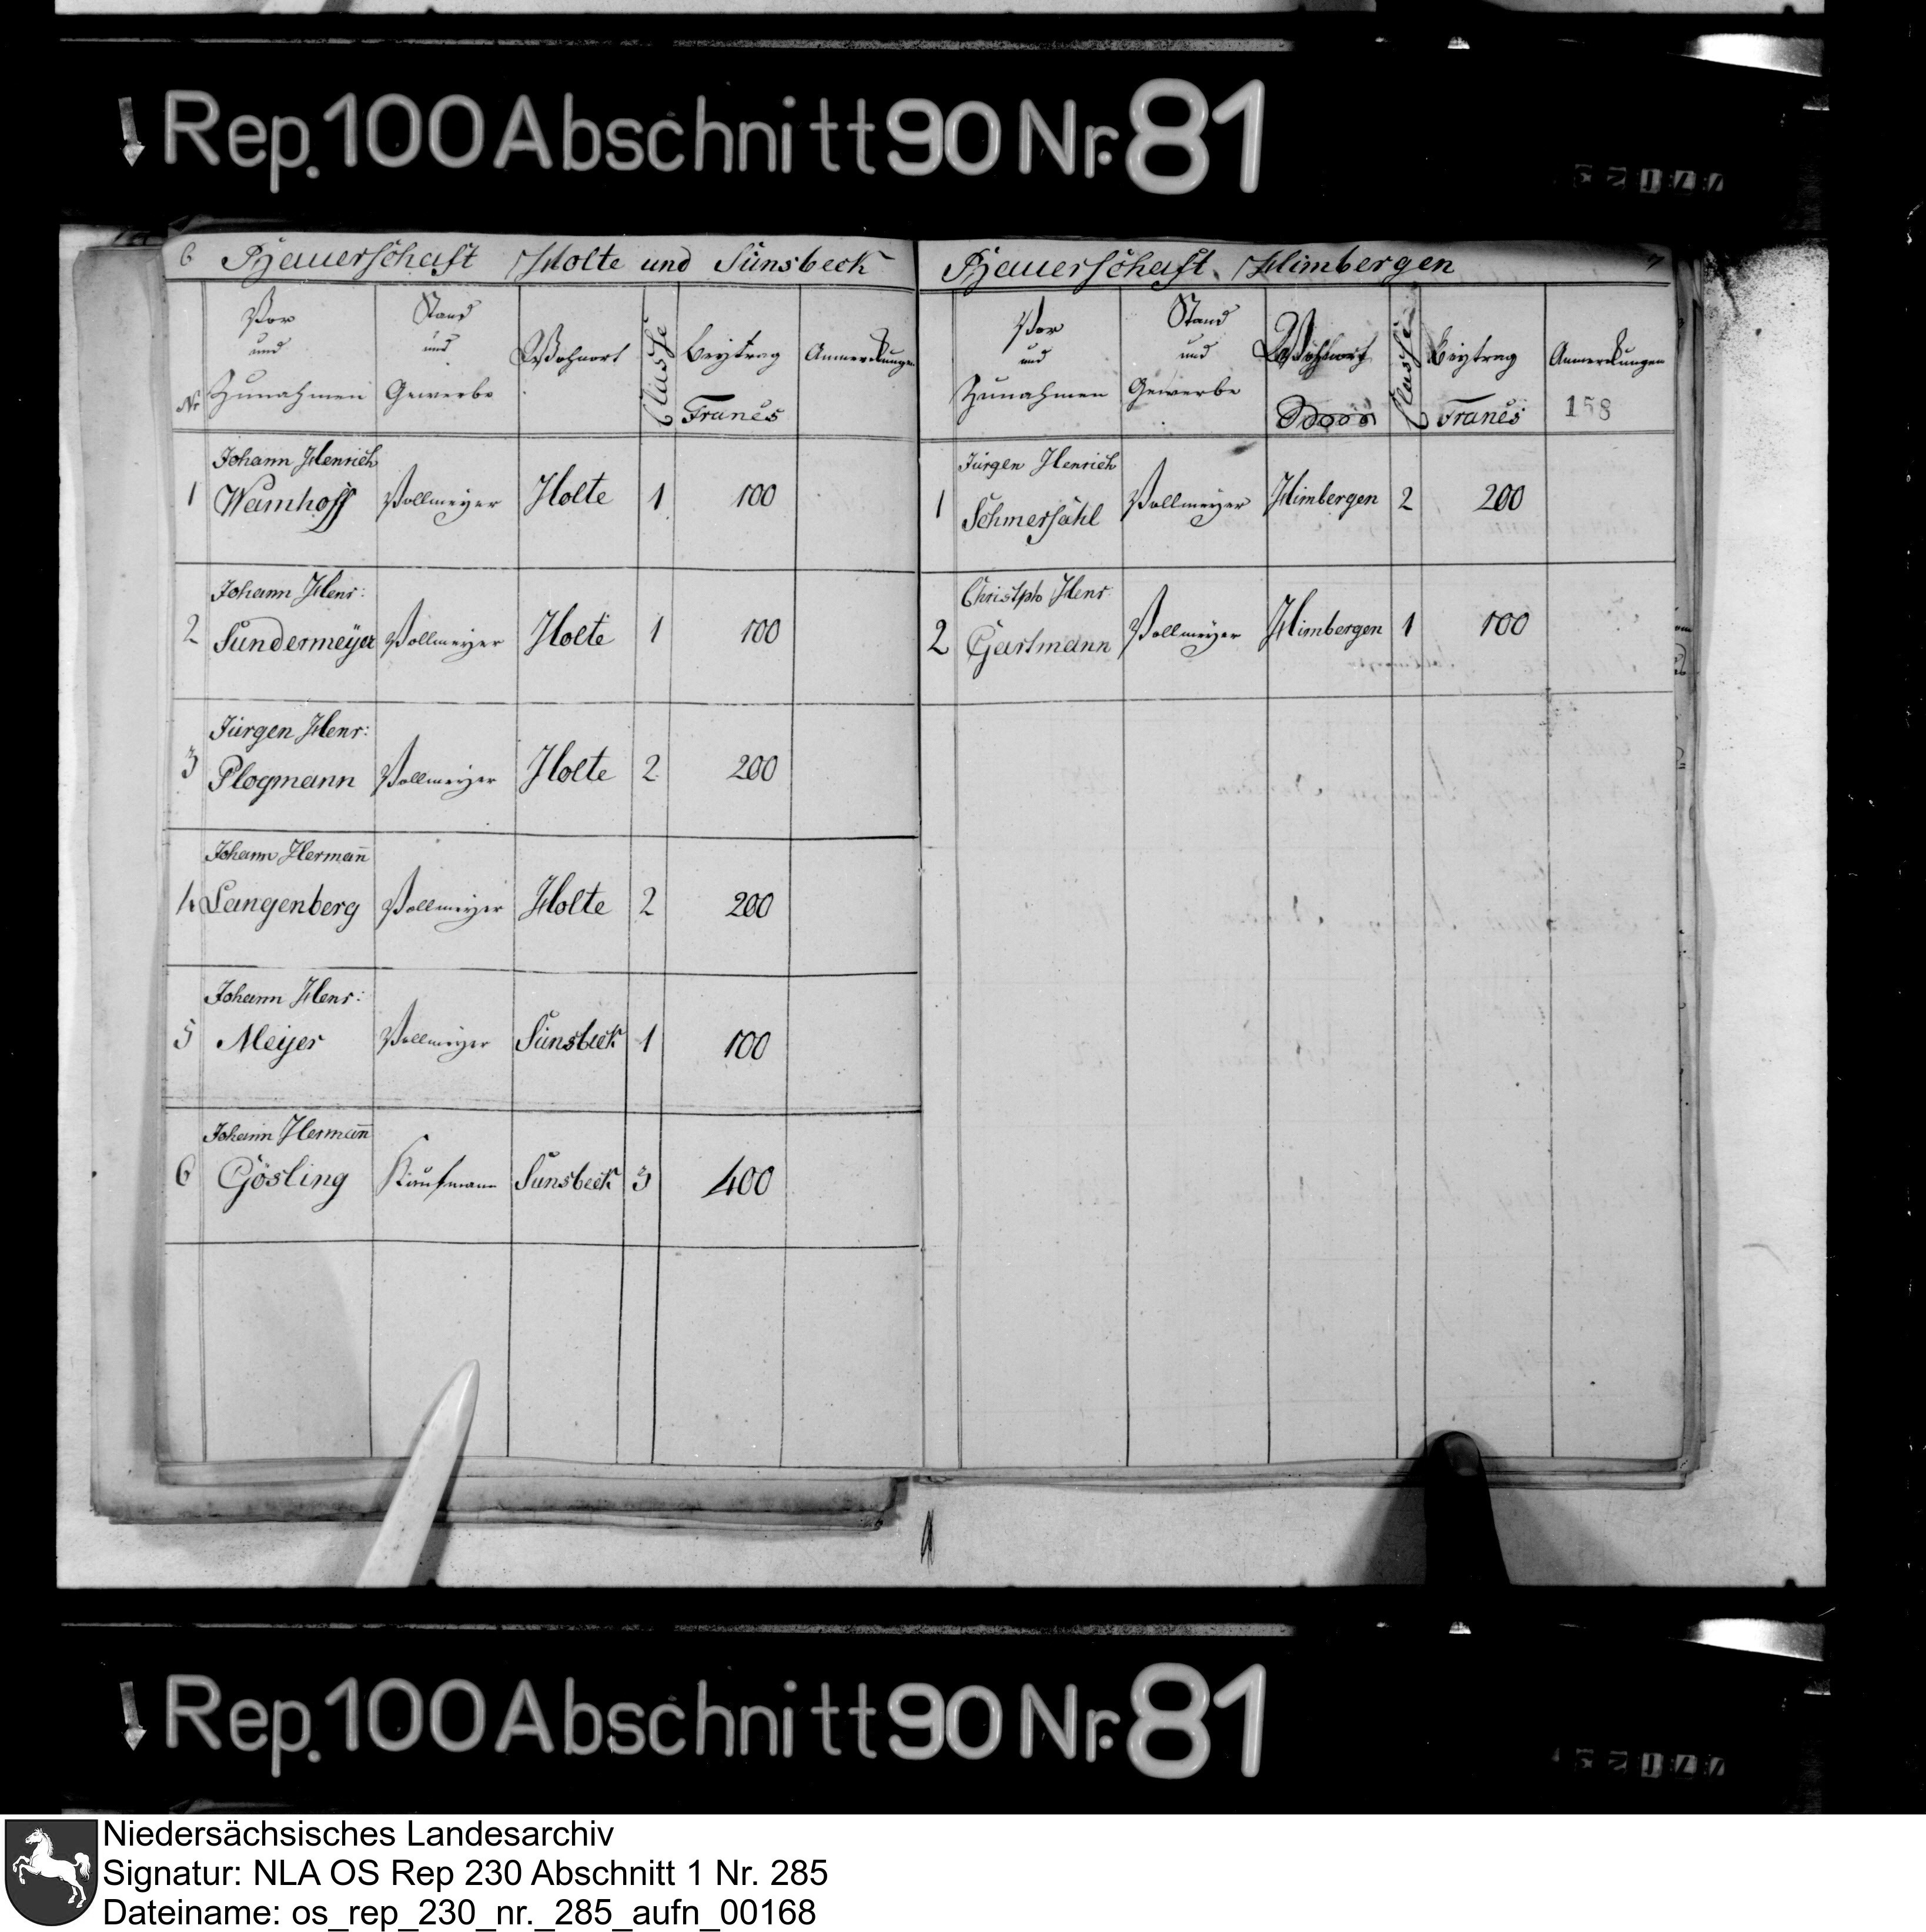 Rep. 100 Abschnitt 90 Nr. 81
6 Bauerschaft Holte und Sünsbeck
Nr Vor und Zunahmen Stand und Gewerbe Wohnort Classe Beÿtrag Francs Anmerckungen
Johann Henrich
1 Wamhoff Vollmeÿer Holte 1 100
Johann Henr:
2 Sundermeÿer Vollmeÿer Holte 1 100
Jürgen Henr:
3 Plogmann Vollmeÿer Holte 2 200
Johann Hermañ
4 Langenberg Vollmeÿer Holte 2 200
Johann Henr:
5 Meÿer Vollmeÿer Sünsbeck 1 100
Johann Hermañ
6 Gösling Kaufmann Sünsbeck 3 400
Bauerschaft Himbergen 7
Vor und Zunahmen Stand und Gewerbe Wohnort Classe Beÿtrag Francs Anmerckungen
158
Jürgen Henrich
1 Schmersahl Vollmeÿer Himbergen 2 200
Christph Henr
2 Gartmann Vollmeÿer Himbergen 1 100
Rep. 100 Abschnitt 90 Nr. 81
Niedersächsisches Landesarchiv
Signatur: NLA OS Rep 230 Abschnitt 1 Nr. 285
Dateiname: os_rep_230_nr._285_aufn_00168